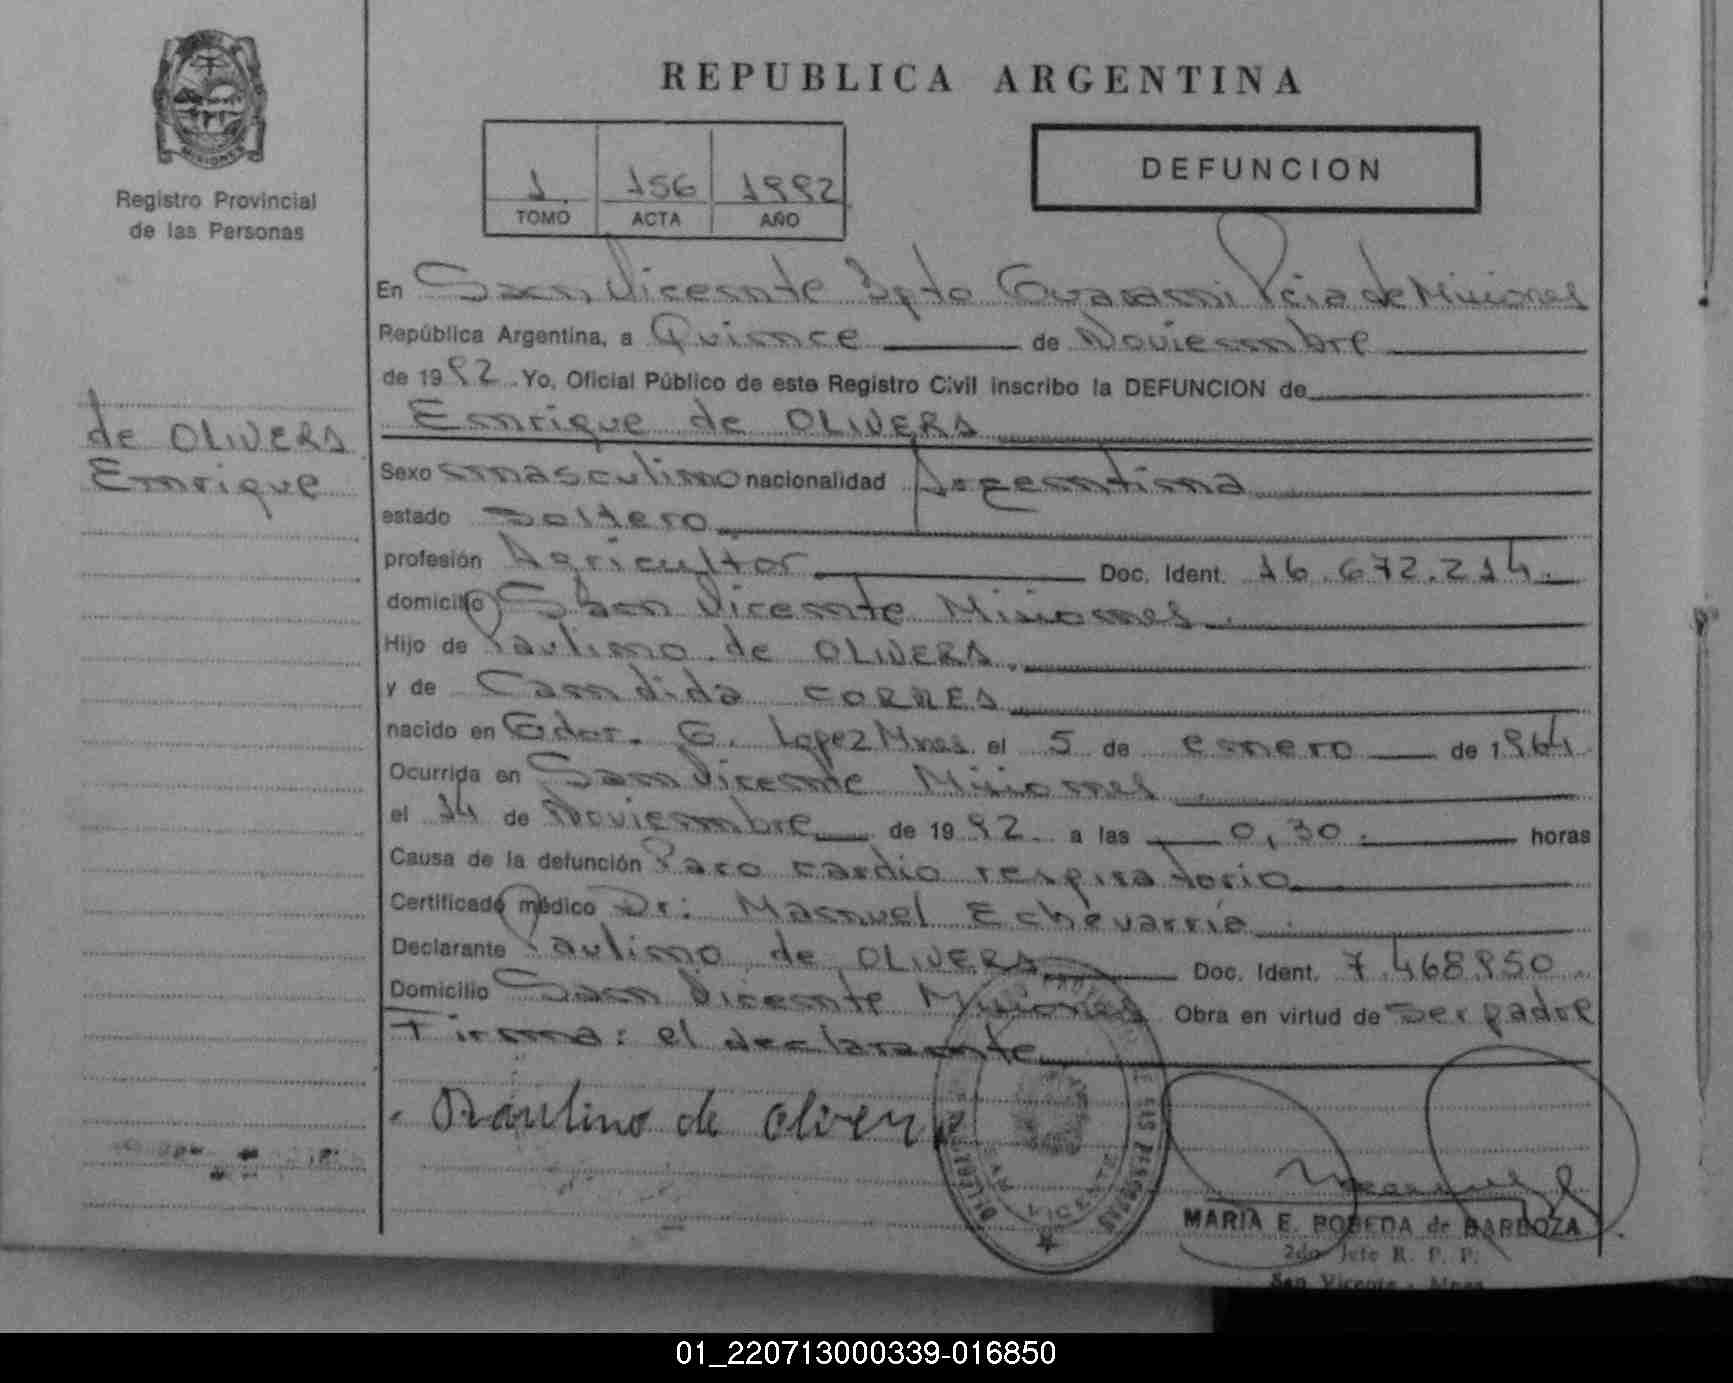 REPUBLICA ARGENTINA
MISIONES
Registro Provincial
de las Personas
1 156 1992
TOMO ACTA AÑO
DEFUNCION
En San Vicente Dpto Guarani Pcia de Misiones
República Argentina, a Quince de Noviembre
de 1992 Yo, Oficial Público de este Registro Civil inscribo la DEFUNCION de
Enrique de OLIVERA
de OLIVERA
Enrique
Sexo masculino nacionalidad Argentina
estado Soltero
profesión Agricultor Doc. Ident. 16.672.214.
domicilio San Vicente Misiones.
Hijo de Paulino de OLIVERA.
y de Candida CORRES
nacido en Gdor. G. Lopez Mnes. el 5 de enero de 1964
Ocurrida en San Vicente Misiones
el 14 de Noviembre de 1992 a las 0,30. horas
Causa de la defunción Paro cardio respiratorio
Certificado médico Dr: Manuel Echévarria
Declarante Paulino de OLIVERA Doc. Ident. 7.468.950
Domicilio San Vicente Misiones Obra en virtud de ser padre
Firma: el declarante
Paulino de Oliver
DE LAS PERSONAS
SAN VICENTE
MARIA E. POBEDA de BARBOZA
2do Jefe R. P. P.
San Vicente - Mnes
01_220713000339-016850